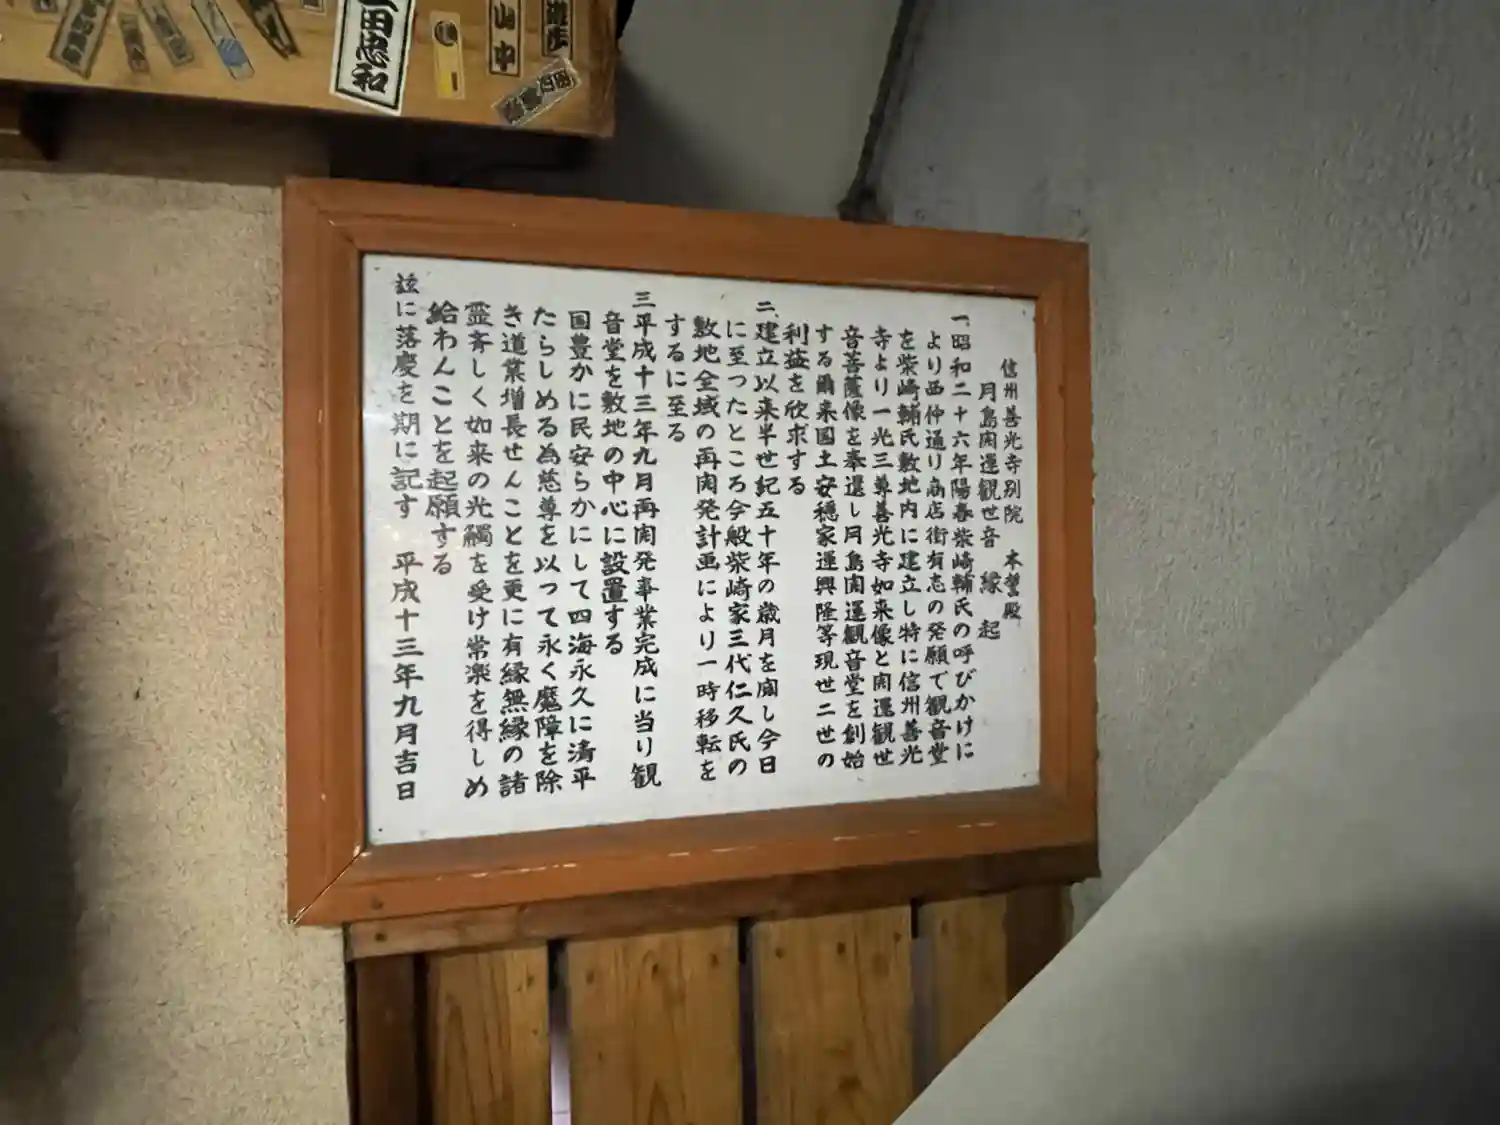 信州善光寺別院 本誓殿
月島開運観世音 縁起
一、昭和二十六年陽春柴崎輔氏の呼びかけに
より西仲通り商店街有志の発願で観音堂
を柴崎輔氏敷地内に建立し特に信州善光
寺より一光三尊善光寺如来像と開運観世
音菩薩像を奉還し月島開運観音堂を創始
する爾来国土安穏家運興隆等現世二世の
利益を欣求する
二、建立以来半世紀五十年の歳月を閲し今日
に至ったところ今般柴崎家三代仁久氏の
敷地全域の再開発計画により一時移転を
するに至る
三平成十三年九月再開発事業完成に当り観
音堂を敷地の中心に設置する
国豊かに民安らかにして四海永久に清平
たらしめる為慈尊を以って永く魔障を除
き道業増長せんことを更に有縁無縁の諸
霊斉しく如来の光觸を受け常楽を得しめ
給わんことを起願する
茲に落慶を期に記す 平成十三年九月吉日
田忠和
山中